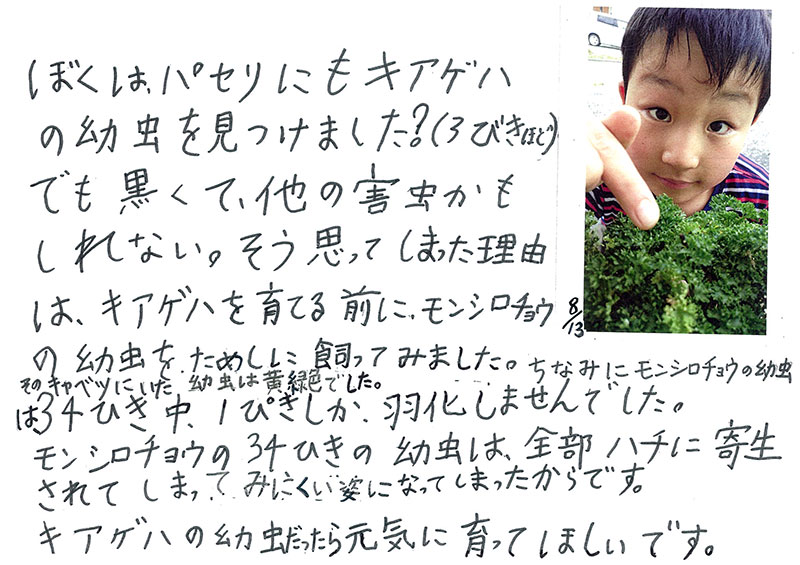 ぼくは、パセリにもキアゲハ
の幼虫を見つけました?(3びきほど)
でも黒くて、他の害虫かも
しれない。そう思ってしまった理由
は、キアゲハを育てる前に、モンシロチョウ
8/13
の幼虫を、ためしに飼ってみました。ちなみにモンシロチョウの幼虫
そのキャベツにいた幼虫は黄緑色でした。
は34ひき中、1ぴきしか、羽化しませんでした。
モンシロチョウの34ひきの幼虫は、全部ハチに寄生
されてしまってみにくい姿になってしまったからです。
キアゲハの幼虫だったら元気に育ってほしいです。